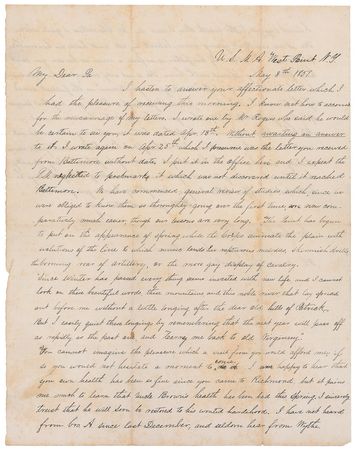 U. S. M. A. West Point N.Y
May 8th 1857.
My Dear Pa
I hasten to answer your affectionate letter which I
had the pleasure of receiving this morning. I know not how to account
for the miscarriage of my letters. I wrote one by Mr Rogers who said he would
be certain to see you, it was dated Apr 18th. Without awaiting an answer
to it I wrote again on Apr 25th which I presume was the letter you received
from Baltimore without date. I put it in the office here and I expect the
P.M. neglected to postmark it which was not discovered until it reached
Baltimore. We have commenced general review of studies which since we
are obliged to know them as thoroughly going over the first time, are now com-
paratively much easier though our lessons are very long. The Point has begun
to put on the appearance of spring when the corps animate the plain with
evolutions of the line to which music lends her rapturous melodies,
the thundering roar of artillery, or the more gay display of cavalry.
Since Winter has passed every thing seems invested with new life and I cannot
look on these beautiful woods, these mountains and this noble river that lay spread
out before me without a little longing after the dear old hills of
But I easily quiet these longings by remembering that the next year will pass off
as rapidly as the past one and "carry me back to old Virginny".
You cannot imagine the pleasure which a visit from you would afford me, if
so you would not hesitate a moment to come. I am happy to hear that
your own health has been so fine since you came to Richmond, but it pains
me much to learn that Uncle Brown's health has been bad this Spring, I sincerely
trust that he will soon be restored to his wonted hardihood. I have not heard
from bro A since last December, and seldom hear from Wythe.